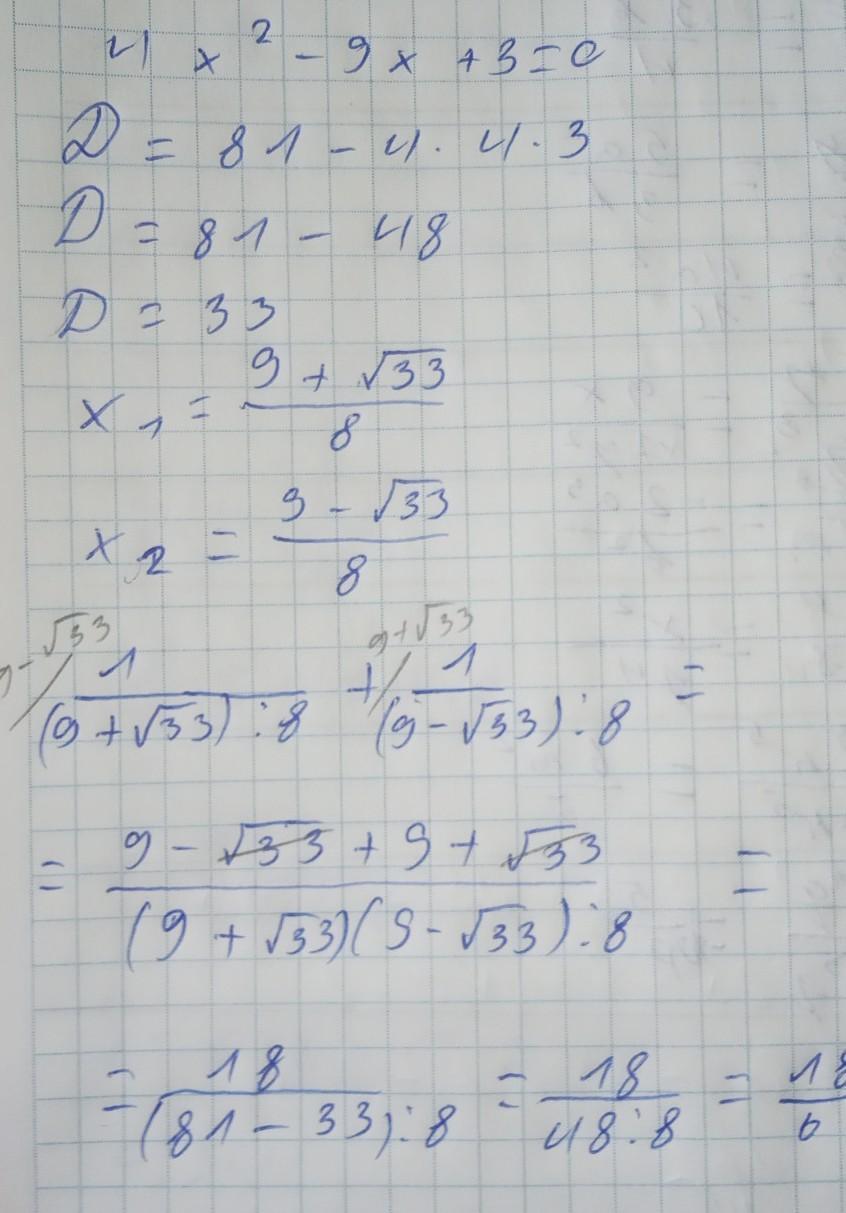 4x² - 9x + 3 = 0
D = 81 - 4 · 4 · 3
D = 81 - 48
D = 33
x₁ = (9 + √33)/8
x₂ = (9 - √33)/8
9-√33/ 1/((9+√33):8) + 9+√33/ 1/((9-√33):8) =
= (9 - √33 + 9 + √33)/((9 + √33)(9 - √33):8) =
= 18/((81 - 33):8) = 18/(48:8) = 18/6